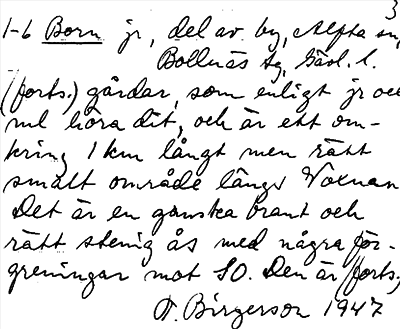 3
1-6 Born jr, del av by, Alfta sn,
Bollnäs tg, Gävl. l.
(forts.) gårdar, som enligt jr och
ml höra dit, och är ett om-
kring 1 km långt men rätt
smalt område längs Voxnan
Det är en ganska brant och
rätt stenig ås med några för-
greningar mot SO. Den är (forts.)
F. Birgerson 1947